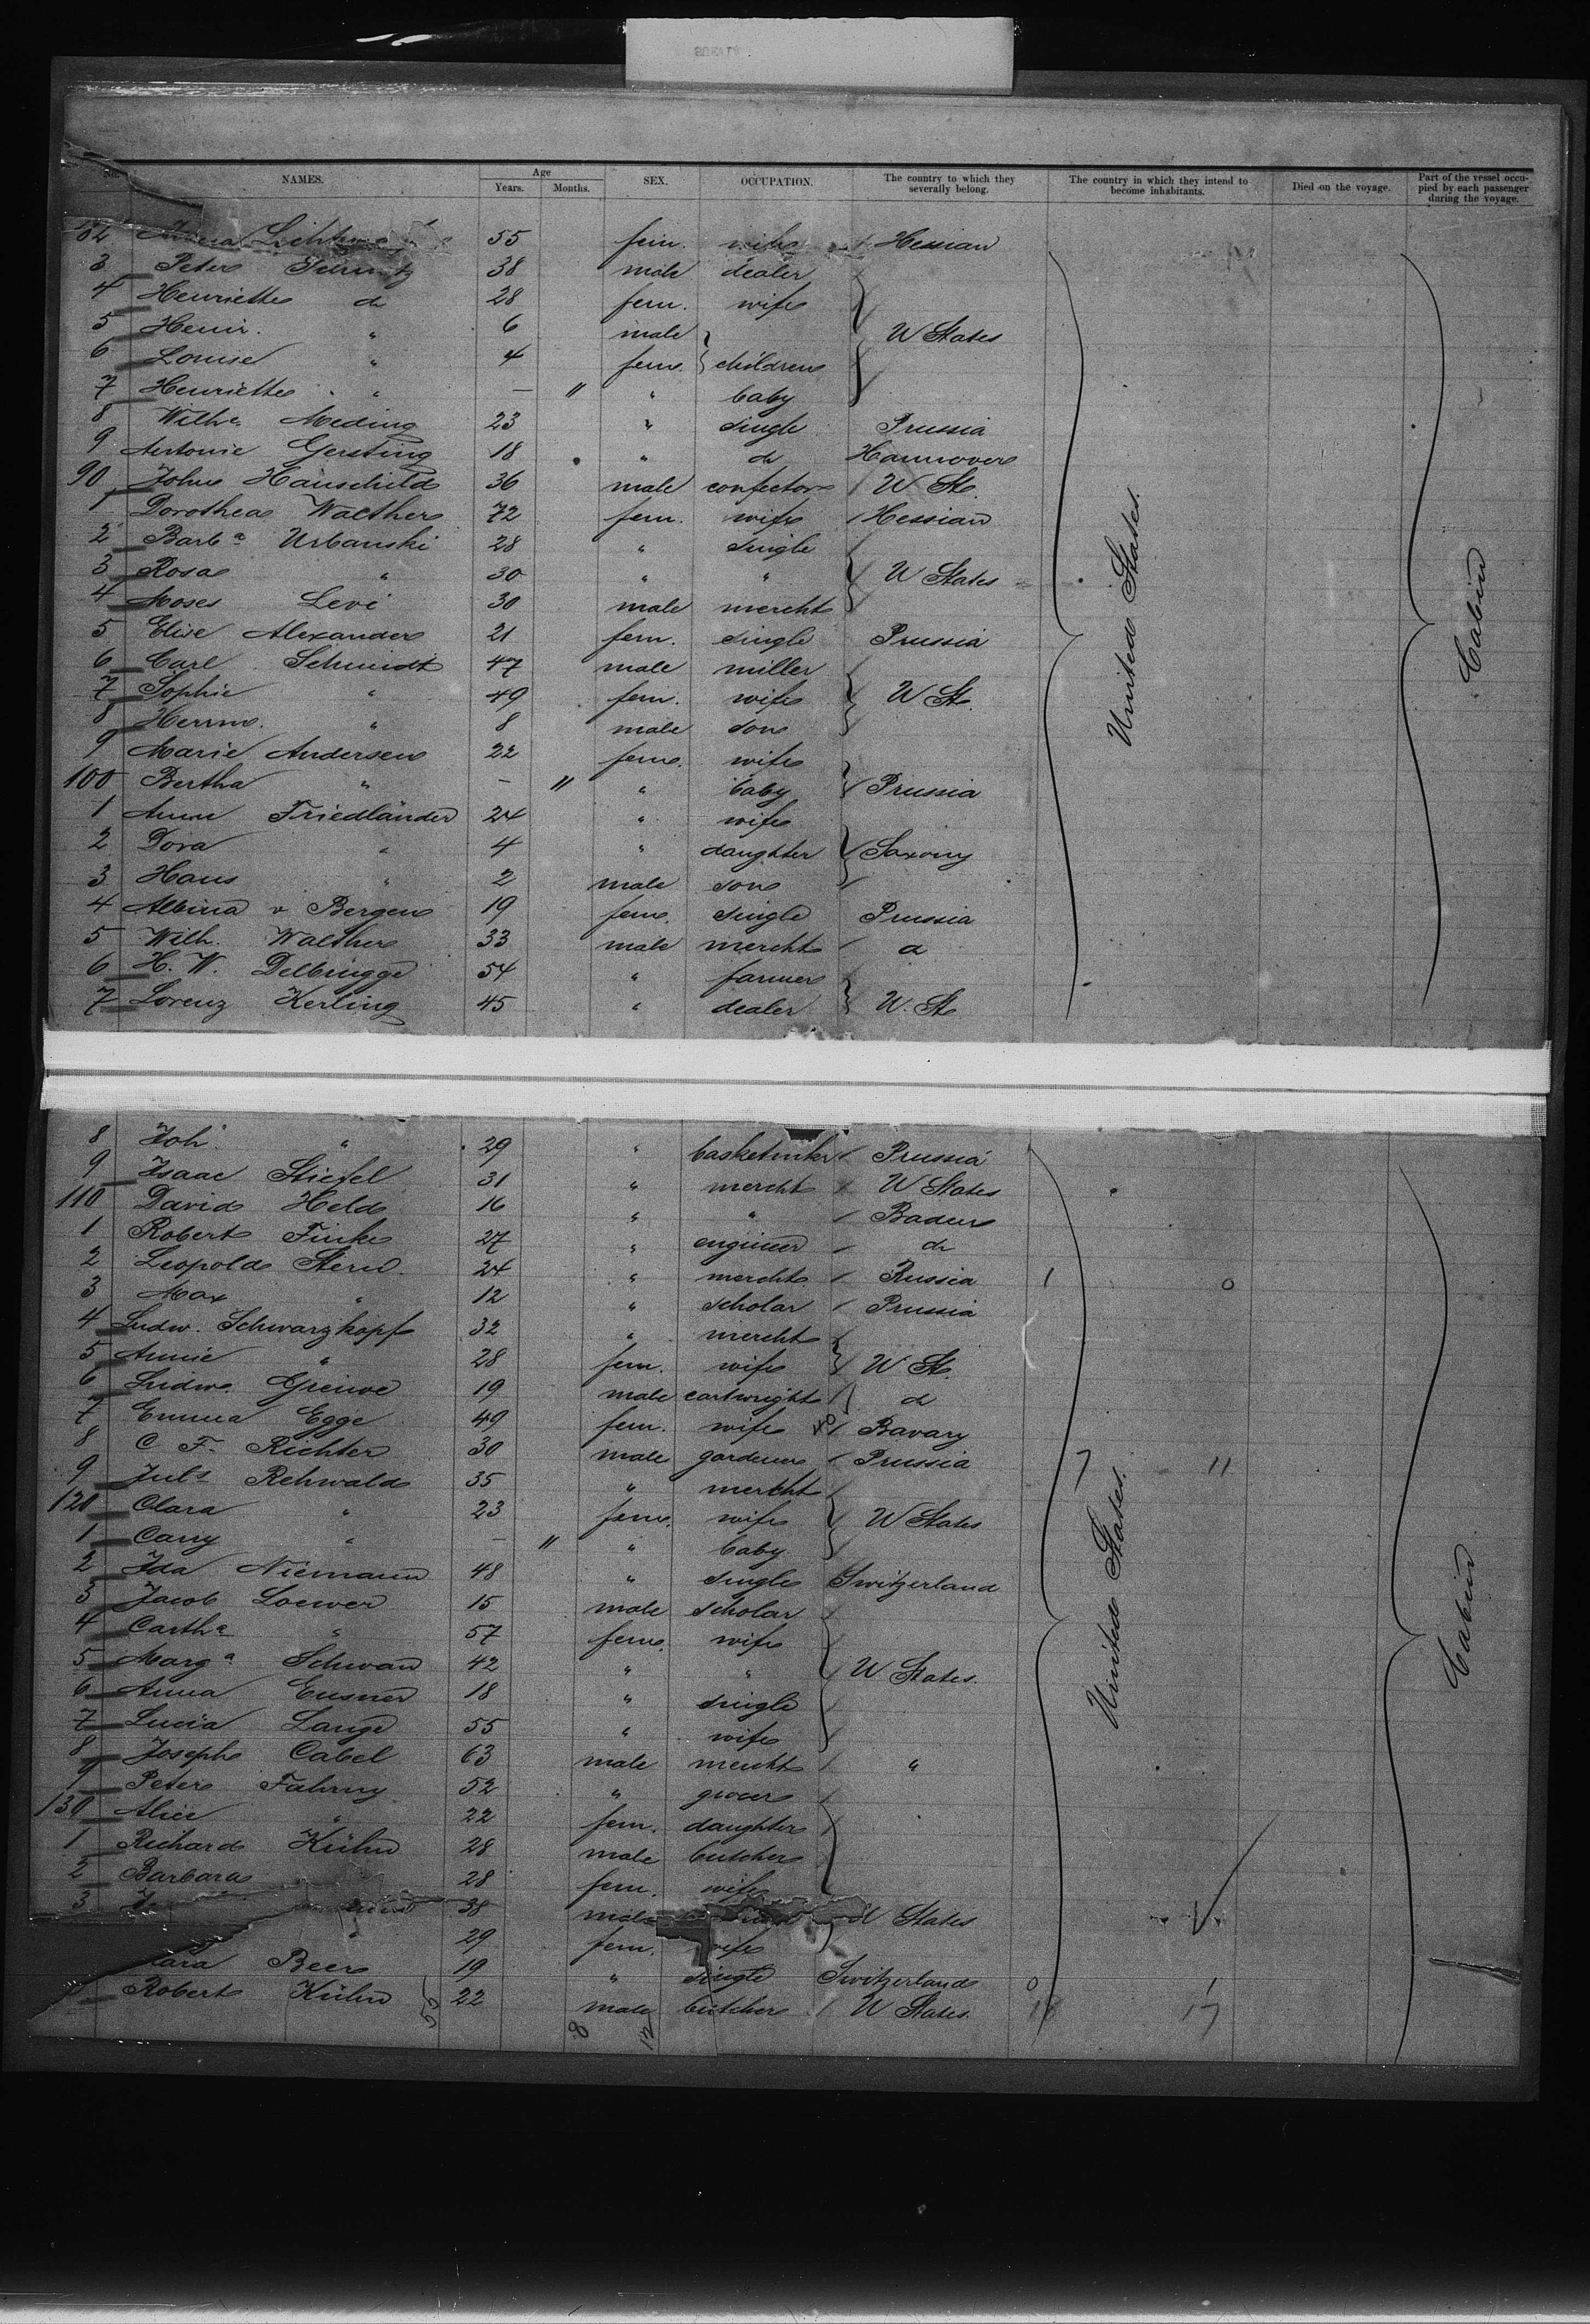 No. NAMES. Age Years. Months. SEX. OCCUPATION. The country to which they severally belong. The country in which they intend to become inhabitants. Died on the voyage. Part of the vessel occupied by each passenger during the voyage.
82 55 fem. wife Hessian
3 Peter 38 male dealer
4 Henriette do 28 fem. wife
5 Heinr. " 6 male U States
6 Louise " 4 fem. children
7 Henriette " — " " baby
8 Wilhe Meding 23 " single Prussia
9 Antonie Gersting 18 " do Hannover
90 John Hauschild 36 male confector U St.
1 Dorothea Walther 72 fem. wife Hessian
2 Barba Urbanski 28 " single
3 Rosa " 30 " " U States
4 Moses Levi 30 male mercht
5 Elise Alexander 21 fem. single Prussia
6 Carl Schmidt 47 male miller
7 Sophie " 49 fem. wife U St.
8 Herrm. " 8 male son
9 Marie Andersen 22 fem. wife
100 Bertha " — " " baby Prussia
1 Anna Friedländer 24 " wife
2 Dora " 4 " daughter Saxony
3 Hans " 2 male son
4 Albina v Bergen 19 fem. single Prussia
5 Wilh. Walther 33 male mercht do
6 H. W. Delbrügge 54 " farmer
7 Lorenz Kerling 45 " dealer U. St.
United States.
Cabin
8 Joh. " 29 " basketmkr Prussia
9 Isaac Stiefel 31 " mercht U States
110 David Held 16 " " Baden
1 Robert Finke 27 " engineer do
2 Leopold Stern 24 " mercht Russia
3 Max " 12 " scholar Prussia
4 Ludw. Schwarzkopf 32 " mercht
5 Annie " 28 fem. wife U St.
6 Ludw. 19 male cartwright do
7 Emma Egge 49 fem. wife Bavary
8 C. F. Richter 30 male gardener Prussia 11
9 Juls Rehwald 35 " mercht
120 Clara " 23 fem. wife U States
1 Carry " — " " baby
2 Ida Niemann 48 " single Switzerland
3 Jacob Loewer 15 male scholar
4 Cartha " 57 fem. wife
5 Marga Schwan 42 " " U States.
6 Anna 18 " single
7 Lucia Lange 55 " wife
8 Joseph Cabel 63 male mercht "
9 Peter Fahrny 52 " grocer
130 Alice " 22 fem. daughter
1 Richard Kühn 28 male butcher
2 Barbara 28 fem. wife
3 38 male U States
" 29 fem. wife
Beer 19 " single Switzerland
Robert Kühn 22 male butcher U States.
55 8 12 17
United States.
Cabin